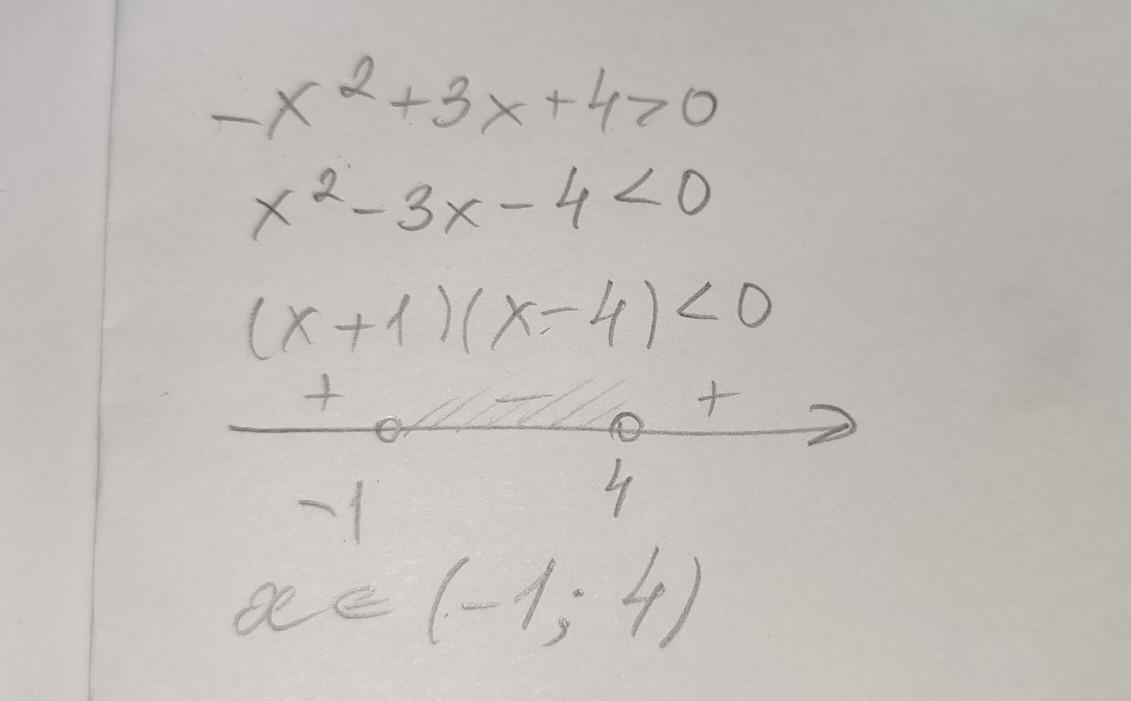 -x²+3x+4>0
x²-3x-4<0
(x+1)(x-4)<0
+ - +
-1 4
x∈(-1; 4)